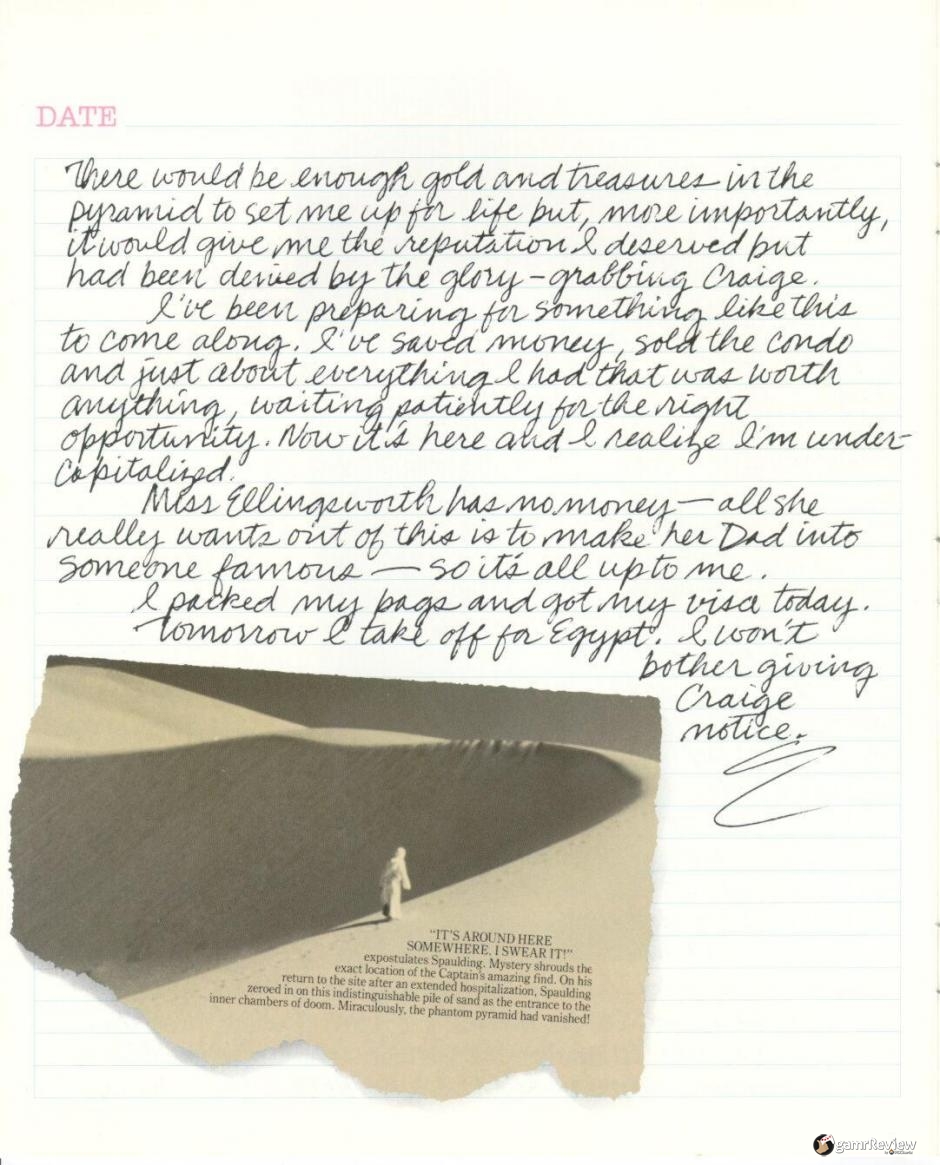 DATE
There would be enough gold and treasures in the
pyramid to set me up for life but, more importantly,
it would give me the reputation I deserved but
had been denied by the glory-grabbing Craige.
I've been preparing for something like this
to come along. I've saved money, sold the condo
and just about everything I had that was worth
anything, waiting patiently for the right
opportunity. Now it's here and I realize I'm under-
capitalized.
Miss Ellingsworth has no money — all she
really wants out of this is to make her Dad into
someone famous — so it's all up to me.
I packed my bags and got my visa today.
Tomorrow I take off for Egypt. I won't
bother giving
Craige
notice.
"IT'S AROUND HERE
SOMEWHERE, I SWEAR IT!"
expostulates Spaulding. Mystery shrouds the
exact location of the Captain's amazing find. On his
return to the site after an extended hospitalization, Spaulding
zeroed in on this indistinguishable pile of sand as the entrance to the
inner chambers of doom. Miraculously, the phantom pyramid had vanished!
gamrReview